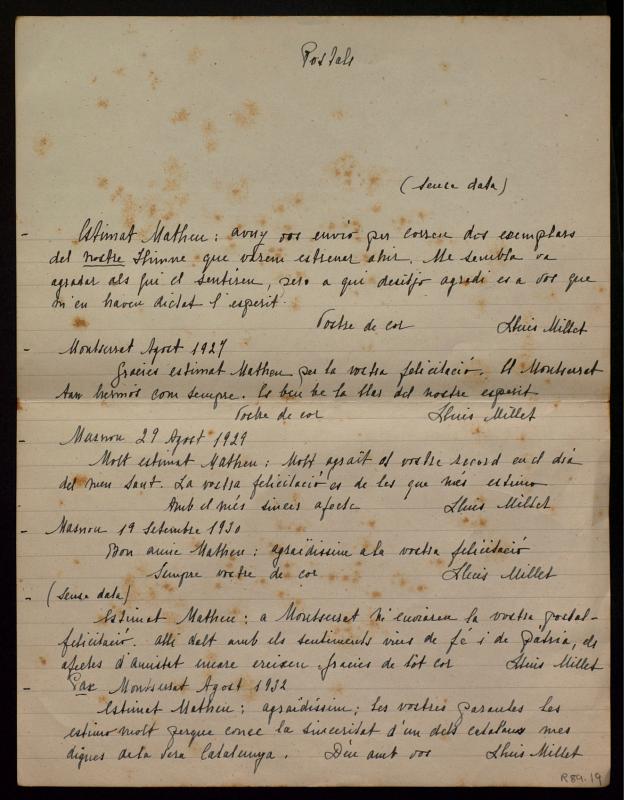 Postals
(sensa data)
- Estimat Matheu: avuy vos envio per correu dos exemplars
del nostre Himne que vàrem estrenar ahir. Me sembla va
agradar als qui el sentiren, pero a qui desitjo agradi es a vos que
m'en haveu dictat l'esperit.
Vostre de cor Lluis Millet
- Montserrat Agost 1927
Gracies estimat Matheu per la vostra felicitació. El Montserrat
tan hermós com sempre. Es ben be la llar del nostre esperit
Vostre de cor Lluis Millet
- Masnou 29 Agost 1929
Molt estimat Matheu: Molt agraït al vostre record en el dia
del meu sant. La vostra felicitació es de les que més estimo
Amb el més sincer afecte Lluis Millet
- Masnou 19 Setembre 1930
Bon amic Matheu: agraïdissim a la vostra felicitació
Sempre vostre de cor Lluis Millet
- (sensa data)
Estimat Matheu: a Montserrat m'enviaren la vostra postal-
felicitació. Allí dalt amb els sentiments vius de fé i de Pàtria, els
afectes d'amistat encare creixen. Gracies de tot cor Lluis Millet
- Pax Montserrat Agost 1932
Estimat Matheu: agraïdíssim; les vostres paraules les
estimo molt perque conec la sinceritat d'un dels catalans mes
dignes de la vera Catalunya. Déu amb vos Lluis Millet
R89.19